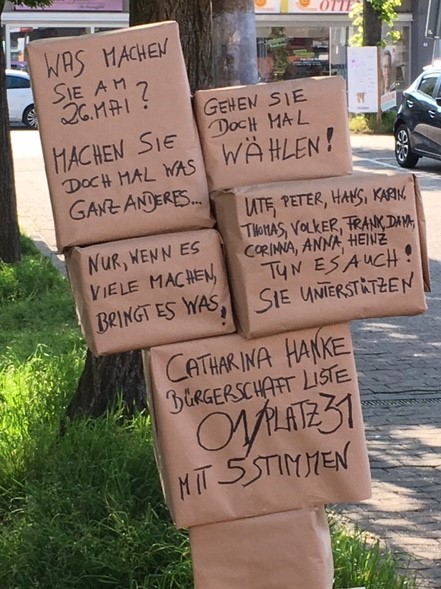 OTTE
WAS MACHEN
SIE AM
26. MAI ?
MACHEN SIE
DOCH MAL WAS
GANZ ANDERES...
GEHEN SIE
DOCH MAL
WÄHLEN!
UTE, PETER, HANS, KARIN,
THOMAS, VOLKER, FRANK, DANA,
CORINNA, ANNA, HEINZ
TUN ES AUCH!
SIE UNTERSTÜTZEN
NUR, WENN ES
VIELE MACHEN,
BRINGT ES WAS!
CATHARINA HANKE
BÜRGERSCHAFT LISTE
01/PLATZ 31
MIT 5 STIMMEN